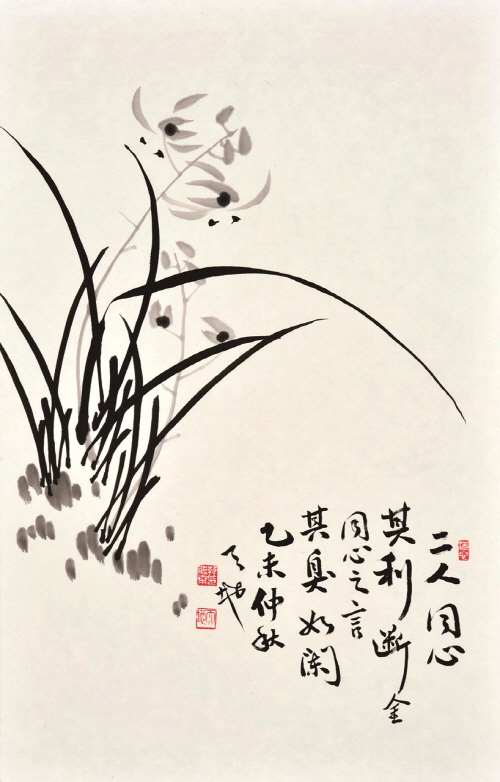 二人同心
其利断金
同心之言
其臭如蘭
乙未仲秋